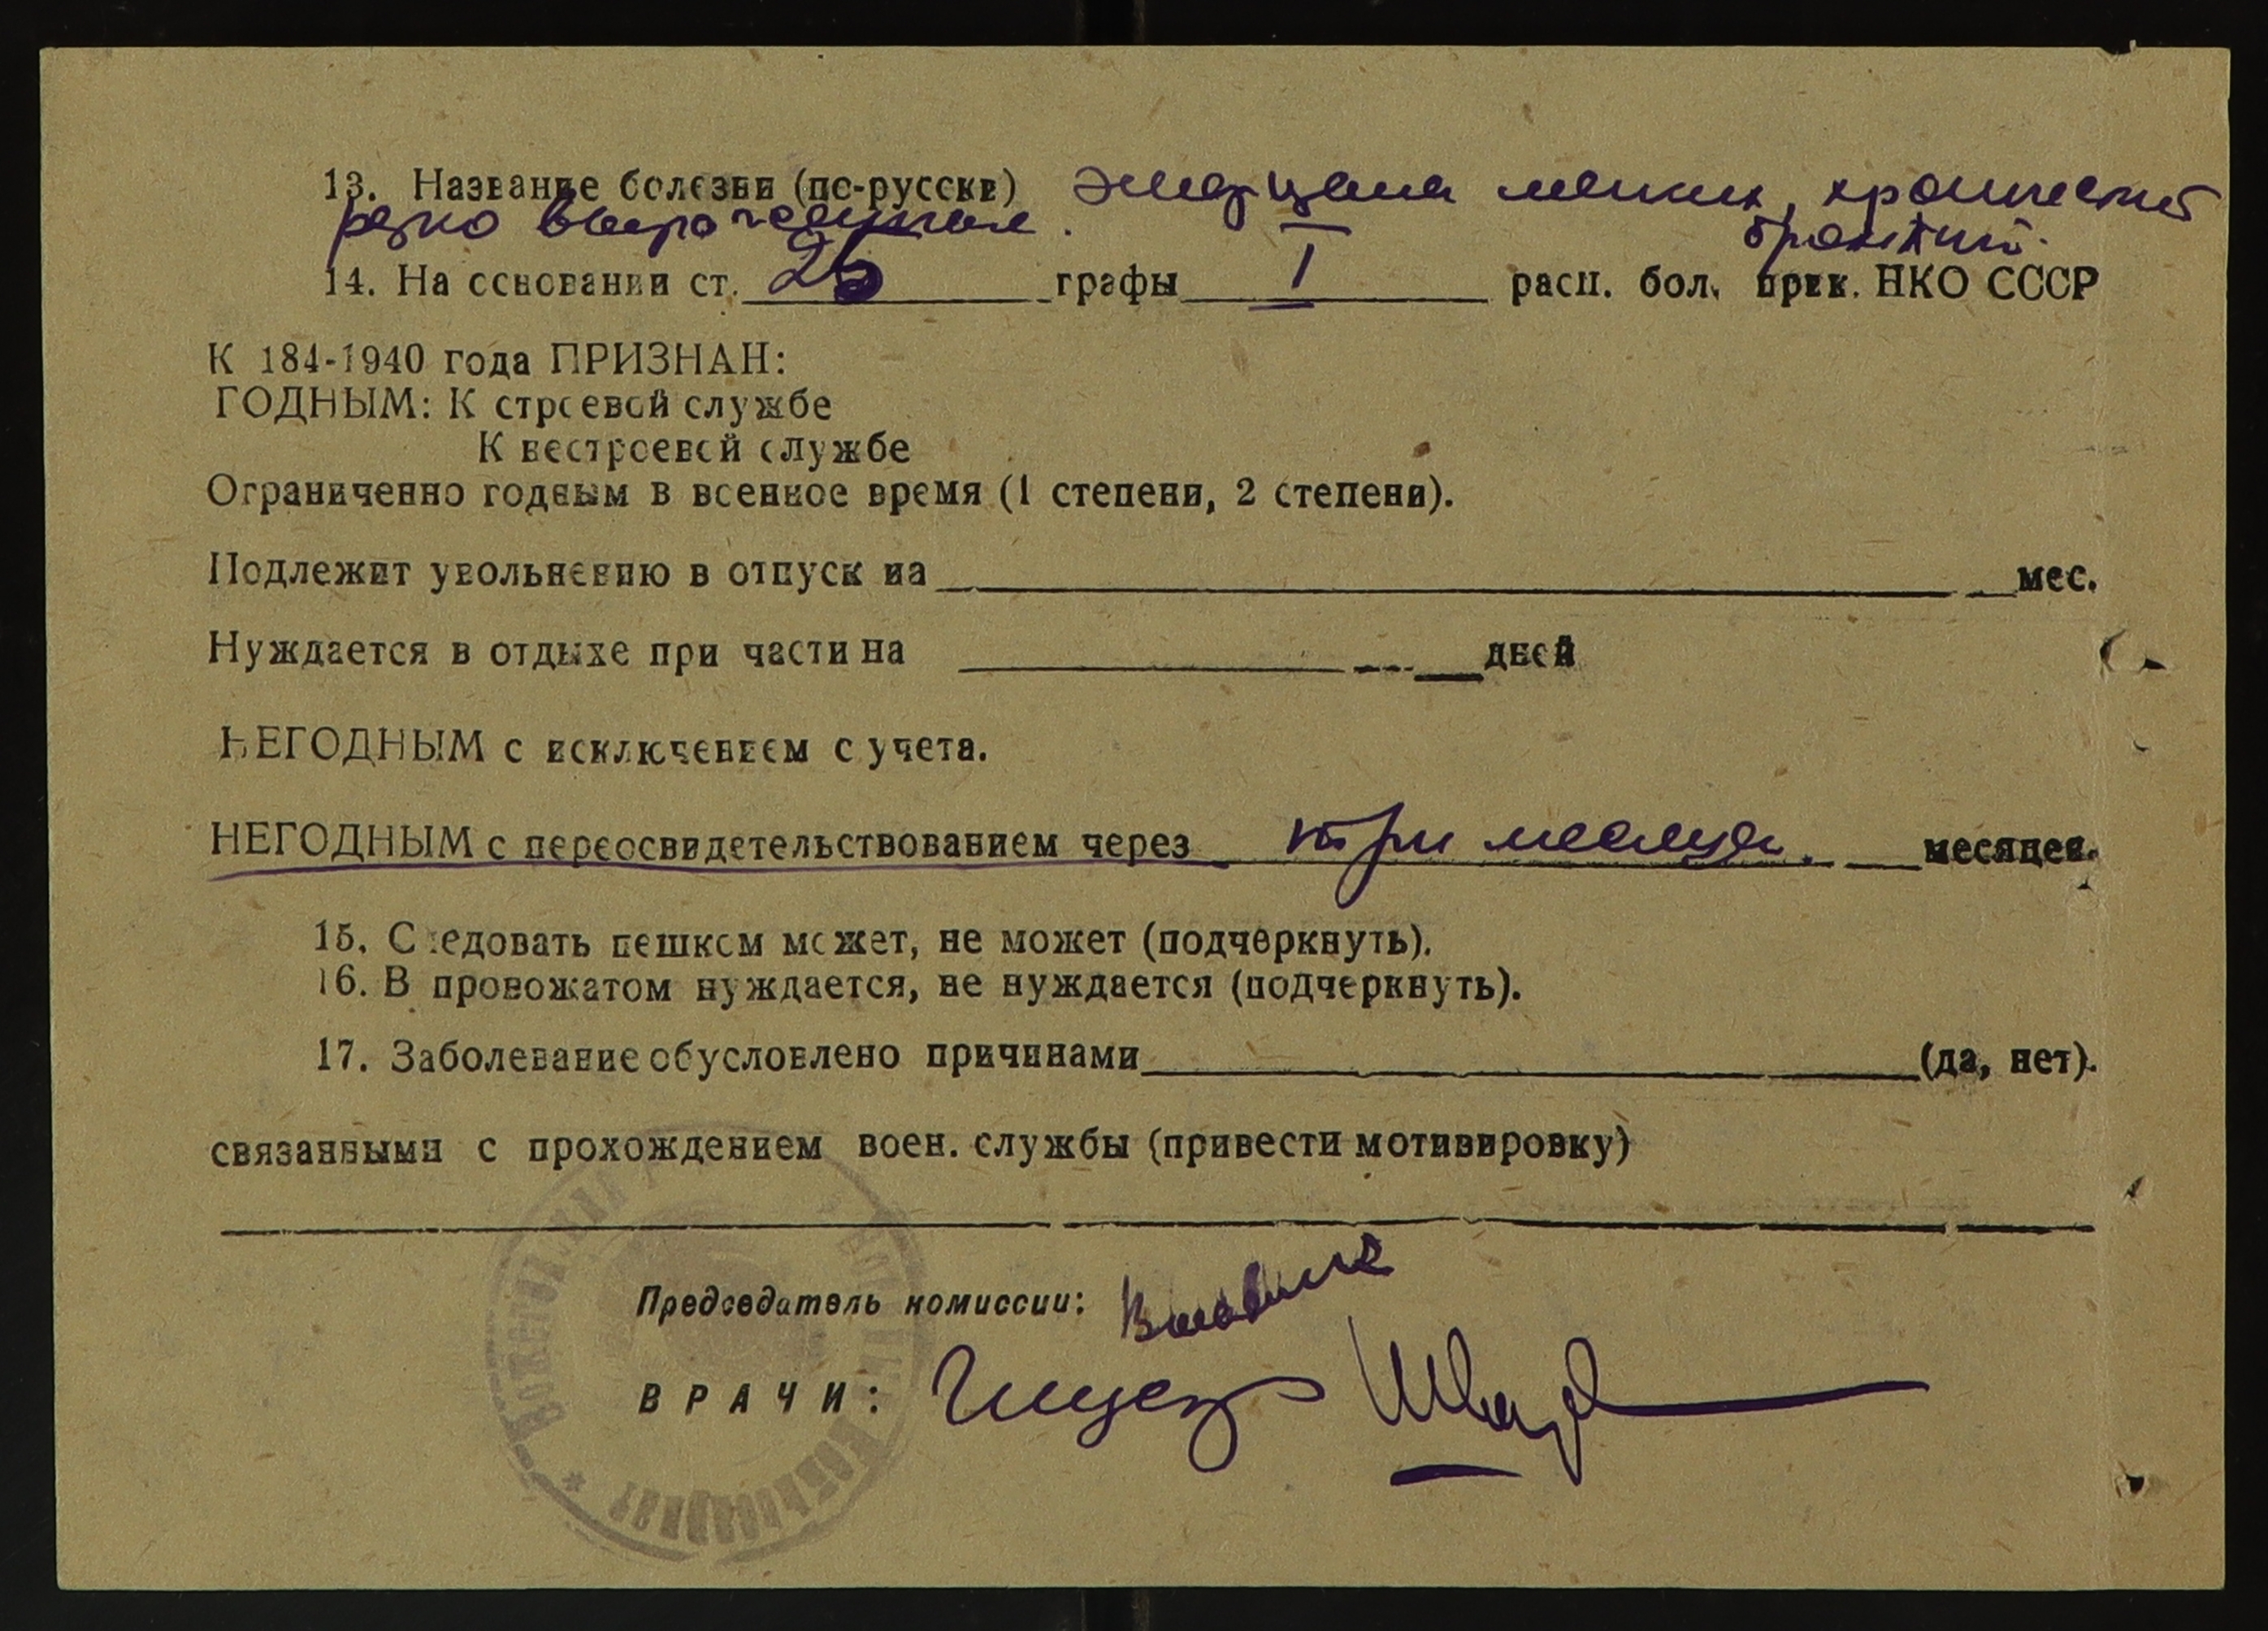 13. Название болезни (по-русски) эмфизема легких, хронический
резко выраженная. бронхит.
14. На основании ст. 26 графы I расп. бол. прик. НКО СССР
К 184-1940 года ПРИЗНАН:
ГОДНЫМ: К строевой службе
К нестроевой службе
Ограниченно годным в военное время (1 степени, 2 степени).
Подлежит увольнению в отпуск на мес.
Нуждается в отдыхе при части на дней
НЕГОДНЫМ с исключением с учета.
НЕГОДНЫМ с переосвидетельствованием через три месяца. месяцев.
15. Следовать пешком может, не может (подчеркнуть).
16. В провожатом нуждается, не нуждается (подчеркнуть).
17. Заболевание обусловлено причинами (да, нет).
связанными с прохождением воен. службы (привести мотивировку)
Председатель комиссии:
ВРАЧИ: